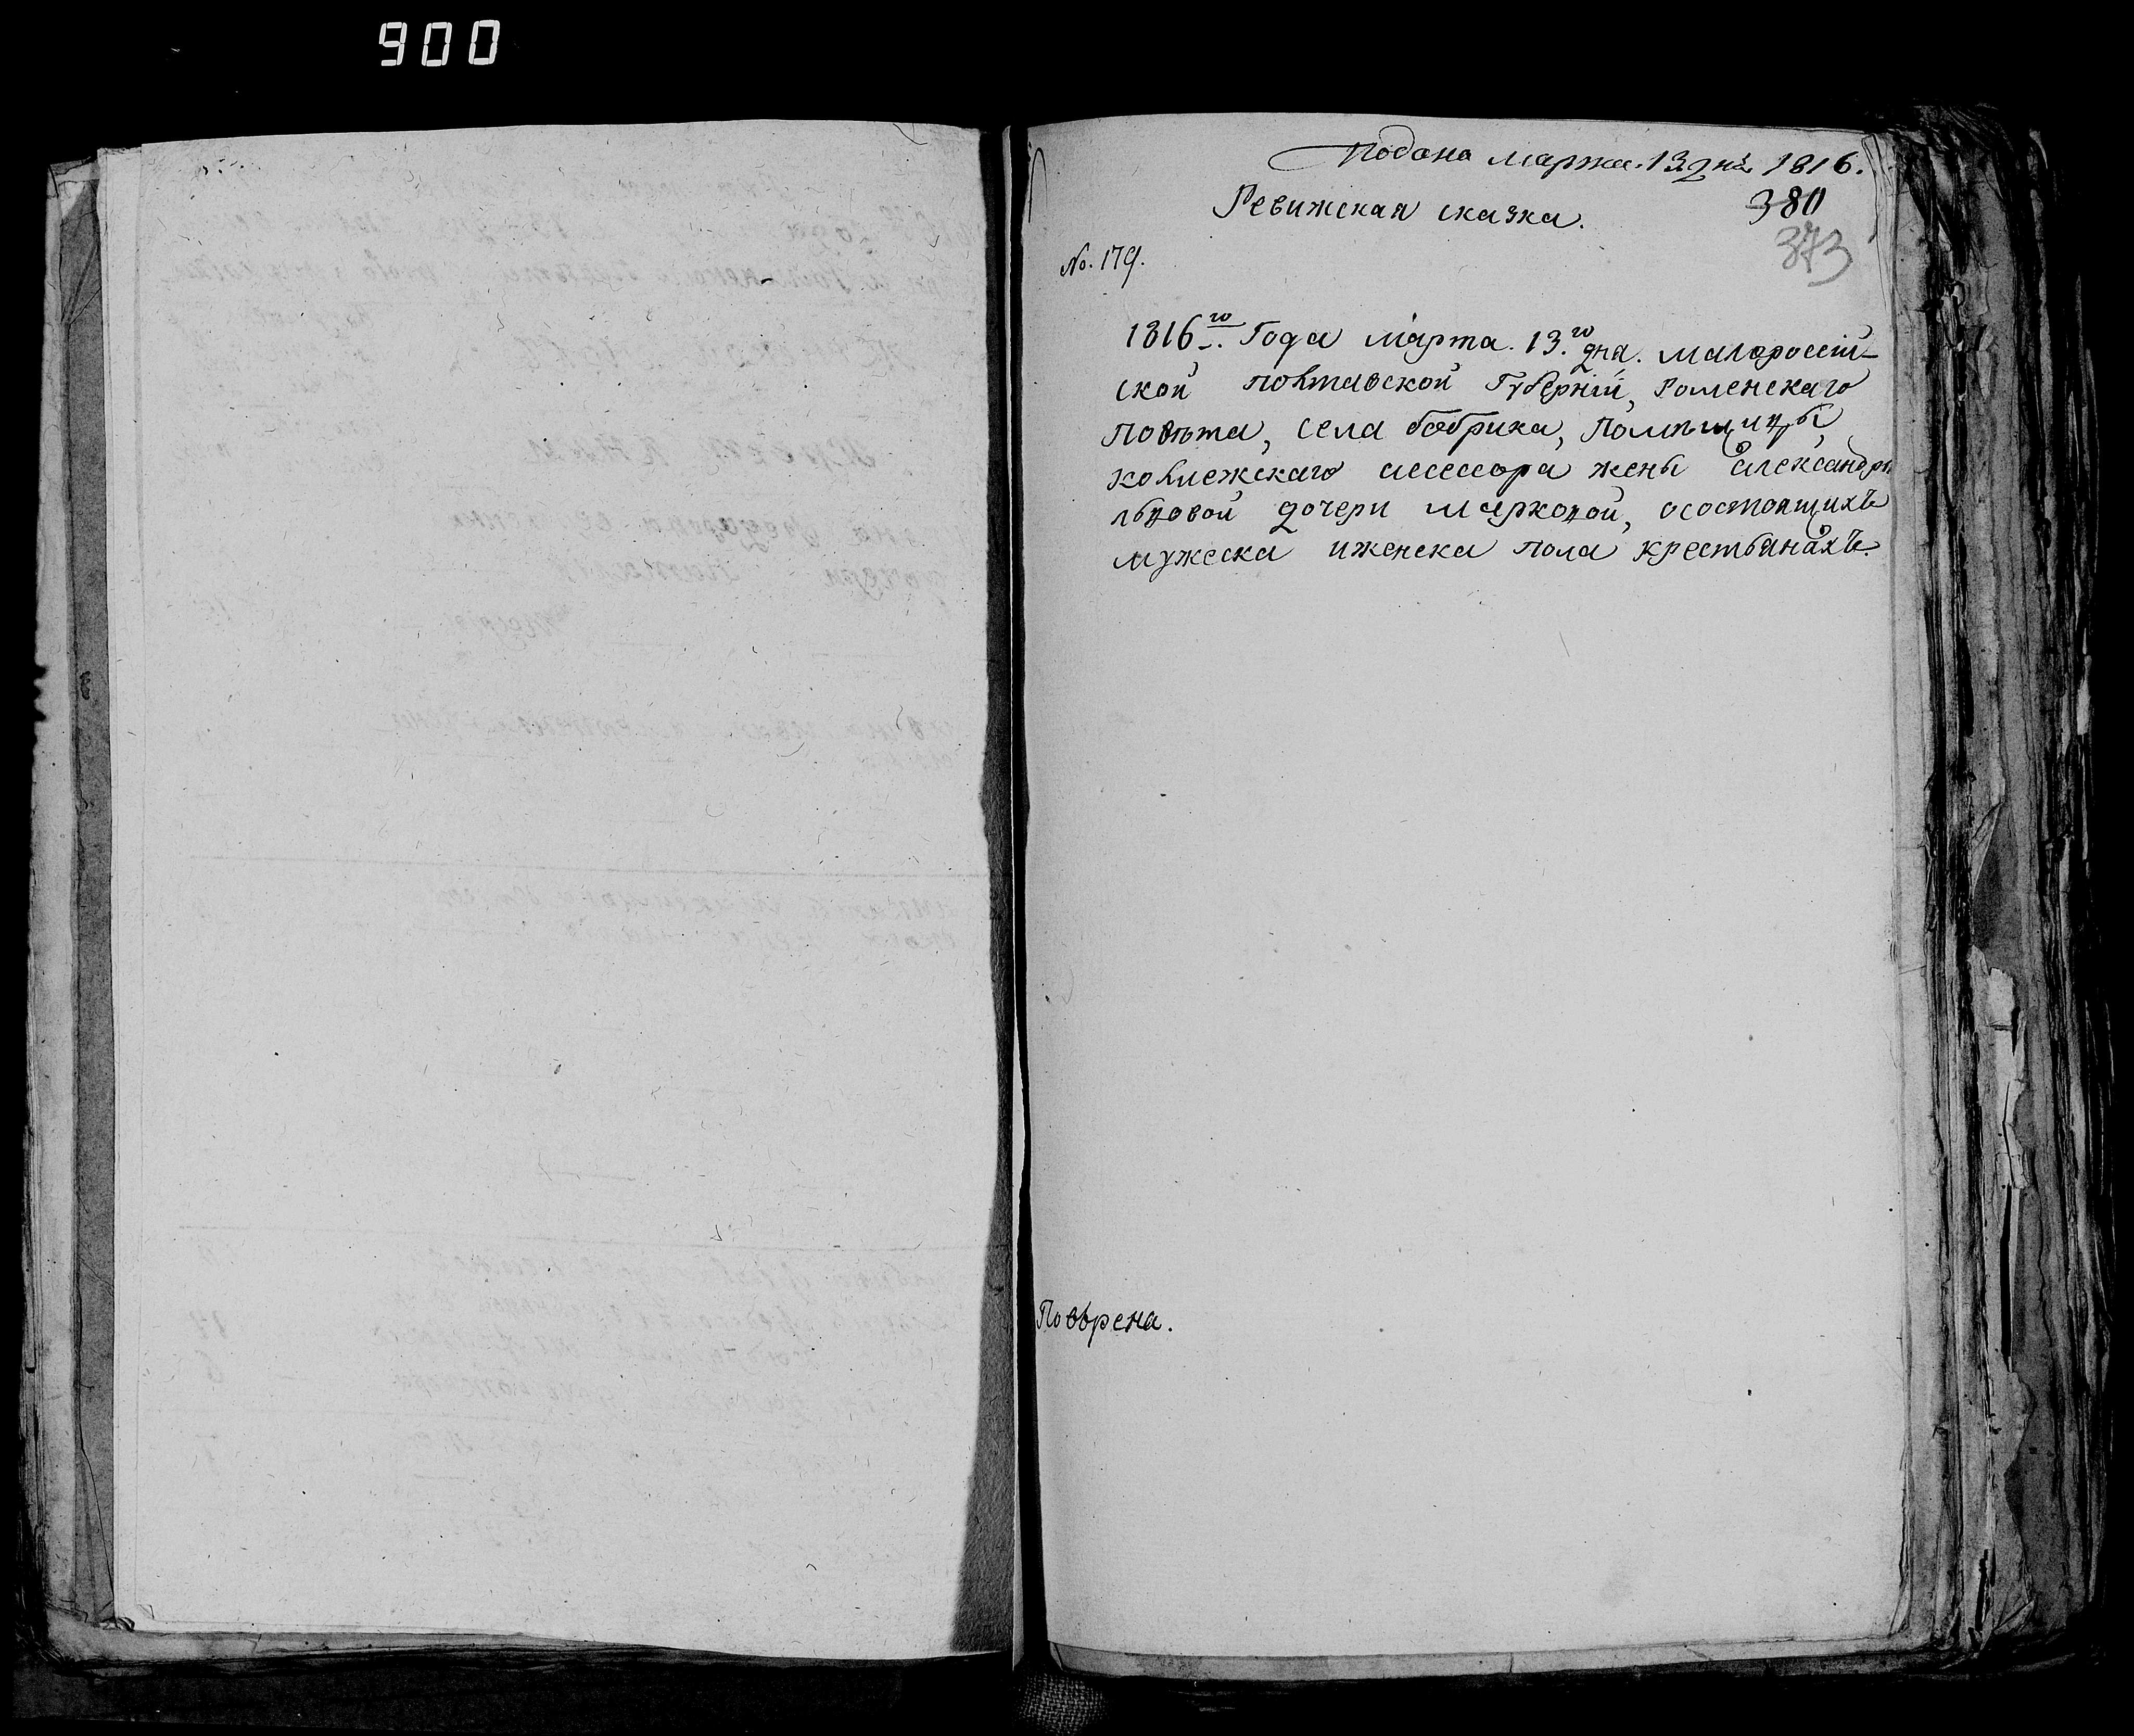 900
Подана марта 13 дня 1816.
Ревижская сказка.
380
373
No. 179.
1816го. Года марта. 13.го дня. малоросcій-
ской полтавской Губерніи, Роменскаго
повѣта, села бобрика, помѣщицы
коллежскаго ассесора жены Александры
львовой дочери марковой, осостоящихъ
мужеска иженска пола крестьянахъ.
Повѣрена.